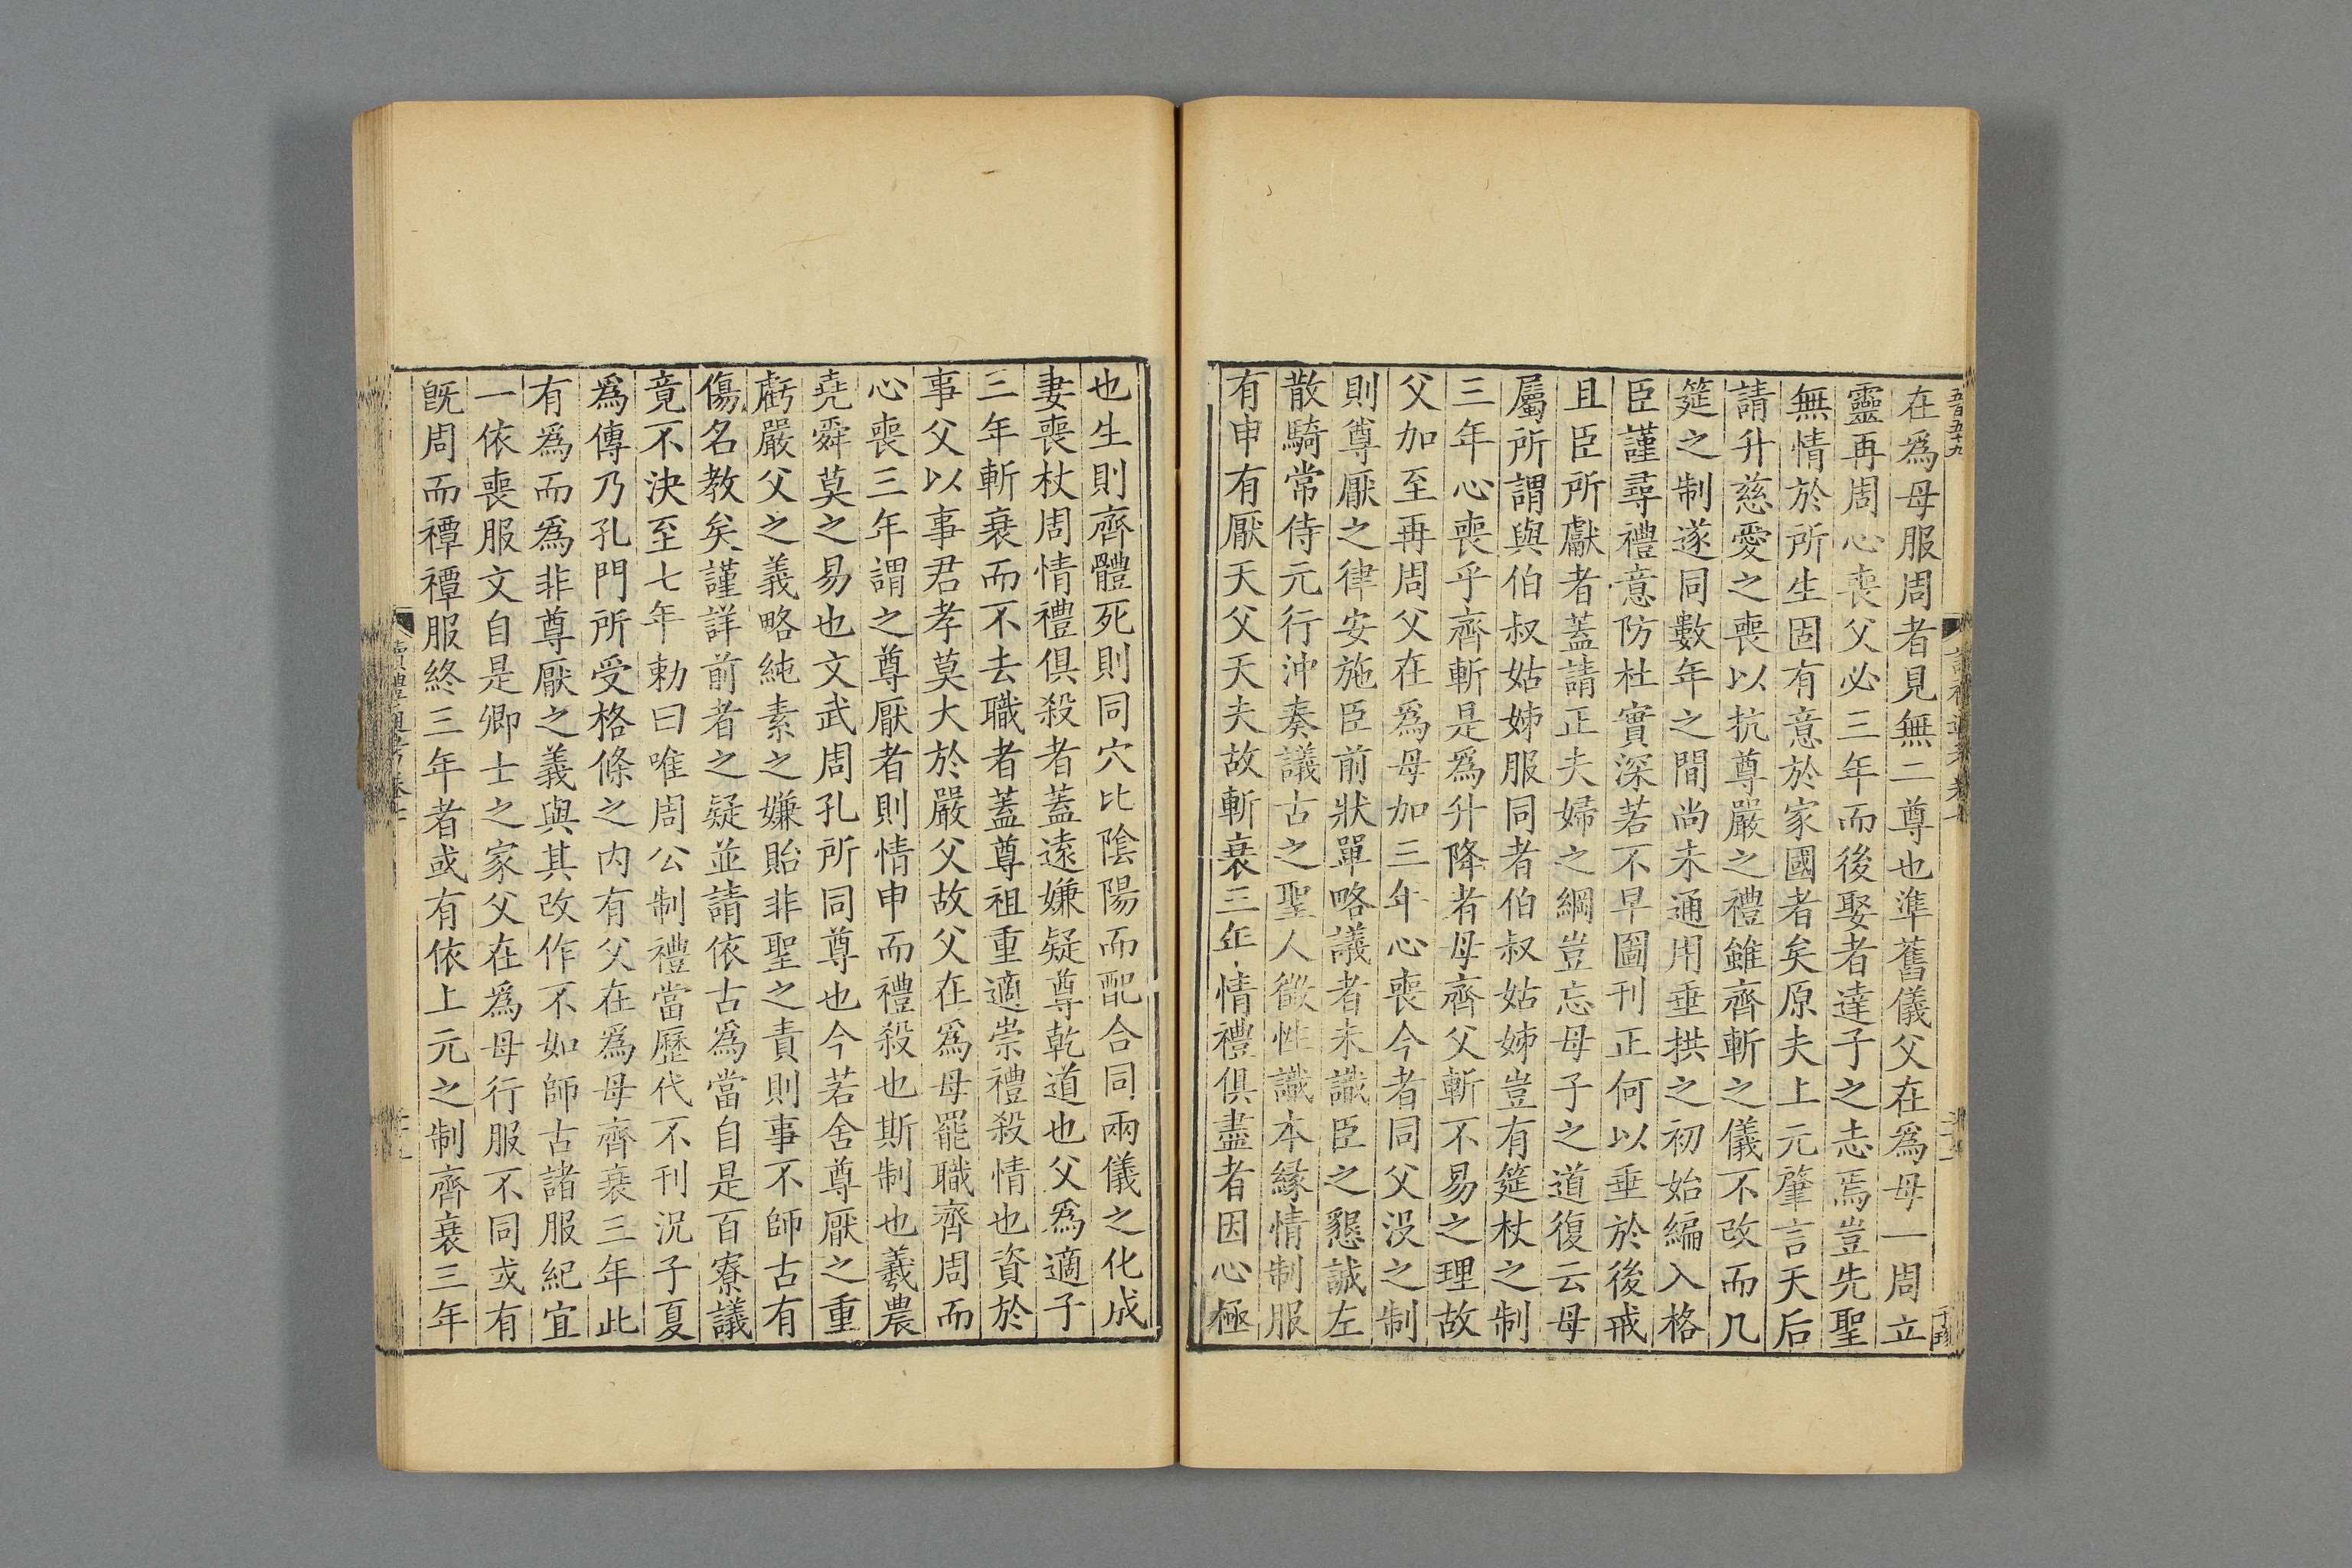 五百五十九
在爲母服周者見無二尊也準舊儀父在爲母一周立
靈再周心喪父必三年而後娶者達子之志焉豈先聖
無情於所生固有意於家國者矣原夫上元肇言天后
請升慈愛之喪以抗尊嚴之禮雖齊斬之儀不改而几
筵之制遂同數年之間尚未通用垂拱之初始編入格
臣謹尋禮意防杜實深若不早圖刊正何以垂於後戒
且臣所獻者蓋請正夫婦之綱豈忘母子之道復云母
屬所謂與伯叔姑姊服同者伯叔姑姊豈有筵杖之制
三年心喪乎齊斬是爲升降者母齊父斬不易之理故
父加至再周父在爲母加三年心喪今者同父没之制
則尊厭之律安施臣前狀單略議者未識臣之懇誠左
散騎常侍元行沖奏議古之聖人徵性識本緣情制服
有申有厭天父天夫故斬衰三年情禮俱盡者因心極
也生則齊體死則同穴比陰陽而配合同兩儀之化成
妻喪杖周情禮俱殺者蓋遠嫌疑尊乾道也父爲適子
三年斬衰而不去職者蓋尊祖重適崇禮殺情也資於
事父以事君孝莫大於嚴父故父在爲母罷職齊周而
心喪三年謂之尊厭者則情申而禮殺也斯制也羲農
堯舜莫之易也文武周孔所同尊也今若舍尊厭之重
虧嚴父之義略純素之嫌貽非聖之責則事不師古有
傷名教矣謹詳前者之疑並請依古爲當自是百寮議
竟不決至七年勅曰唯周公制禮當歷代不刊況子夏
爲傳乃孔門所受格條之内有父在爲母齊衰三年此
有爲而爲非尊厭之義與其改作不如師古諸服紀宜
一依喪服文自是卿士之家父在爲母行服不同或有
旣周而禫禫服終三年者或有依上元之制齊衰三年